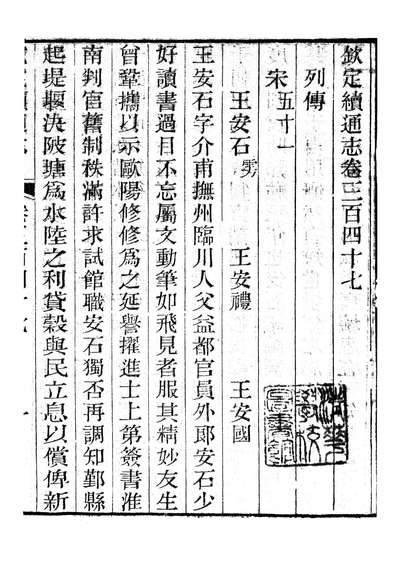 欽定續通志卷三百四十七
列傳
宋五十一
王安石雱 王安禮 王安國
王安石字介甫撫州臨川人父益都官員外郎安石少
好讀書過目不忘屬文動筆如飛見者服其精妙友生
曾鞏攜以示歐陽修修為之延譽擢進士上第簽書淮
南判官舊制秩滿許求試館職安石獨否再調知鄞縣
起堤堰決陂塘為水陸之利貸穀與民立息以償俾新